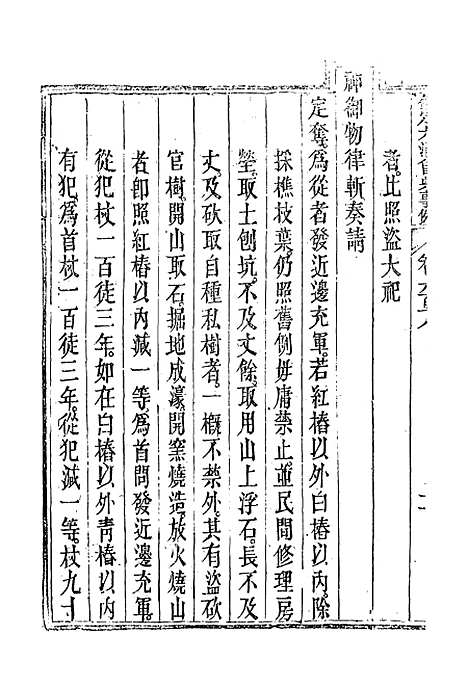 者比照盜大祀
神御物律斬奏請
定奪爲從者發近邊充軍若紅樁以外白樁以內除
採樵枝葉仍照舊例毋庸禁止並民間修理房
塋取土刨坑不及丈餘取用山上浮石長不及
丈及砍取自種私樹者一概不禁外其有盜砍
官樹開山取石掘地成濠開窯燒造放火燒山
者卽照紅樁以內減一等爲首問發近邊充軍
從犯杖一百徒三年如在白樁以外青樁以內
有犯爲首杖一百徒三年從犯減一等杖九十